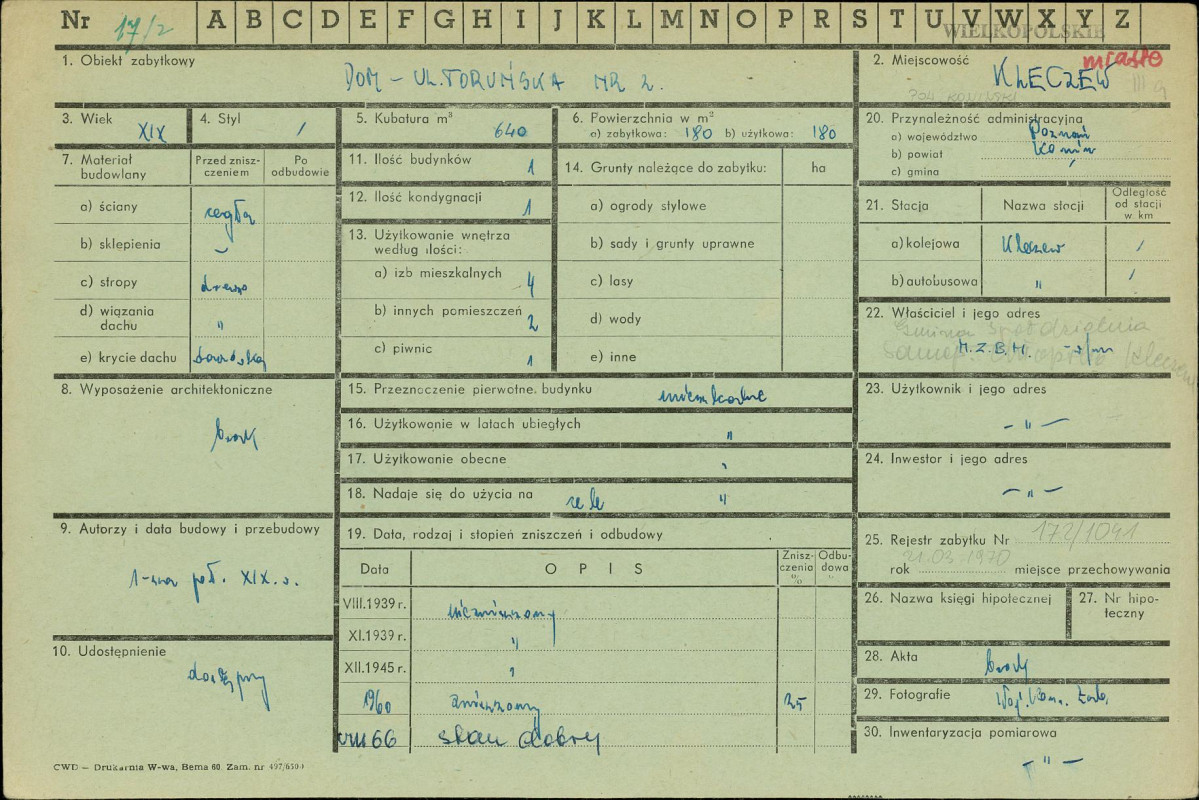 Nr 17/2 A B C D E F G H I J K L M N O P R S T U V W X Y Z
WIELKOPOLSKIE
1. Obiekt zabytkowy
DOM – UL. TORUŃSKA NR 2.
2. Miejscowość
miasto
KLECZEW
3. Wiek XIX
4. Styl /
5. Kubatura m³ 640
6. Powierzchnia w m²
a) zabytkowa: 180 b) użytkowa: 180
20. Przynależność administracyjna
a) województwo Poznań
b) powiat Konin
c) gmina
7. Materiał budowlany
Przed zniszczeniem
Po odbudowie
a) ściany cegła
b) sklepienia –
c) stropy drewno
d) wiązania dachu "
e) krycie dachu
11. Ilość budynków 1
12. Ilość kondygnacji 1
13. Użytkowanie wnętrza
według ilości:
a) izb mieszkalnych 4
b) innych pomieszczeń 2
c) piwnic 1
14. Grunty należące do zabytku: ha
a) ogrody stylowe
b) sady i grunty uprawne
c) lasy
d) wody
e) inne
21. Stacja
Nazwa stacji
Odległość od stacji w. km
a) kolejowa Kleczew /
b) autobusowa " /
22. Właściciel i jego adres
M.Z.B.M.
8. Wyposażenie architektoniczne
brak
15. Przeznaczenie pierwotne budynku mieszkalne
16. Użytkowanie w latach ubiegłych "
17. Użytkowanie obecne "
18. Nadaje się do użycia na cele "
23. Użytkownik i jego adres
– " –
24. Inwestor i jego adres
– " –
9. Autorzy i data budowy i przebudowy
1-sza poł. XIX. w.
19. Data, rodzaj i stopień zniszczeń i odbudowy
Data
O P I S
Zniszczenia %
Odbudowa %
VIII.1939 r. niezniszczony
XI.1939 r. "
XII.1945 r. "
1960 zniszczony 25
VIII 66 stan dobry
25. Rejestr zabytku Nr 172/1041
rok 21.03.1970 miejsce przechowywania
26. Nazwa księgi hipotecznej
27. Nr hipoteczny
10. Udostępnienie
dostępny
28. Akta brak
29. Fotografie Woj. Kons. Zab.
30. Inwentaryzacja pomiarowa
– " –
CWD – Drukarnia W-wa, Bema 60. Zam. nr 497/650